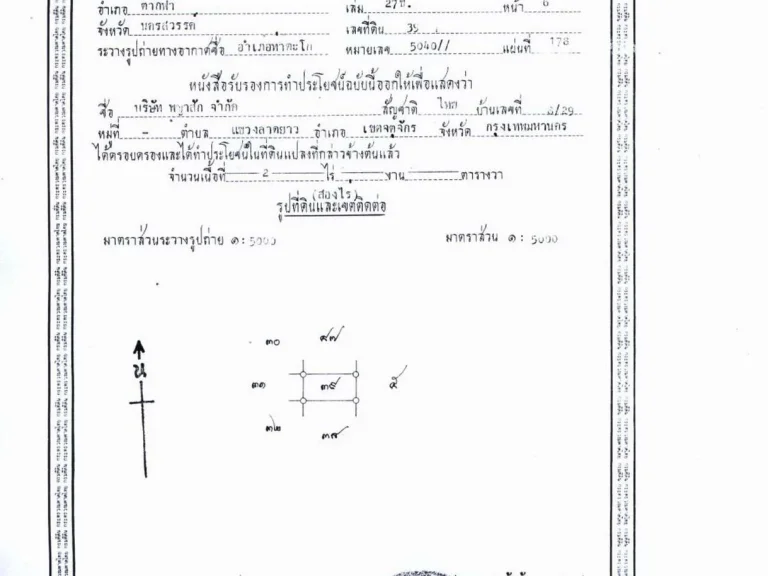 อำเภอ ตากฟ้า เล่ม 27ข. หน้า
จังหวัด นครสวรรค์ เลขที่ดิน 39
ระวางรูปถ่ายทางอากาศชื่อ อำเภอท่าตะโก หมายเลข 5040 แผ่นที่ 178
หนังสือรับรองการทำประโยชน์ฉบับนี้ออกให้เพื่อแสดงว่า
ชื่อ บริษัท จำกัด สัญชาติ ไทย บ้านเลขที่ /29
หมู่ที่ - ตำบล แขวงลาดยาว อำเภอ เขตจตุจักร จังหวัด กรุงเทพมหานคร
ได้ครอบครองและได้ทำประโยชน์ในที่ดินแปลงที่กล่าวข้างต้นแล้ว
จำนวนเนื้อที่ 2 ไร่ - งาน - ตารางวา
(สองไร่)
รูปที่ดินและเขตติดต่อ
มาตราส่วนระวางรูปถ่าย ๑ : 5000 มาตราส่วน ๑ : 5000
๓๐ ๔๗
น ๓๑ ๓๙ ๕
๓๒ ๓๘